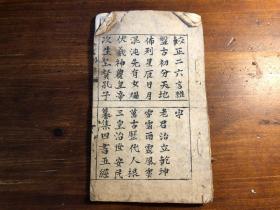 較正二六言雜字
盤古初分天地 老君治立乾坤
佈列星辰日月 雪霜雨露風雲
混沌先有女媧 萬古歷代人根
伏羲神農皇帝 三皇治世安民
次生至聖孔子 纂集四書五經